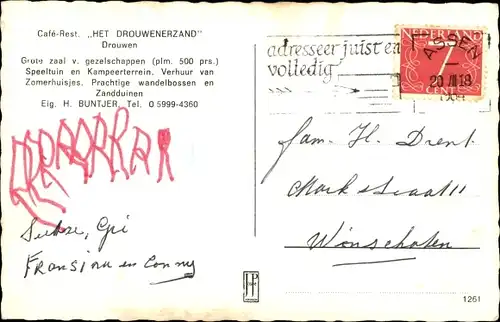 Café-Rest. „HET DROUWENERZAND"
Drouwen
Grote zaal v. gezelschappen (plm. 500 prs.)
Speeltuin en Kampeerterrein. Verhuur van
Zomerhuisjes. Prachtige wandelbossen en
Zandduinen
Eig. H. BUNTJER, Tel. 0 5999-4360
adresseer juist en
volledig
NEDERLAND
7
CENT
ASSEN
Fam. H. Drent
Markstraat 11
Winschoten
Fransina en Conny
1261